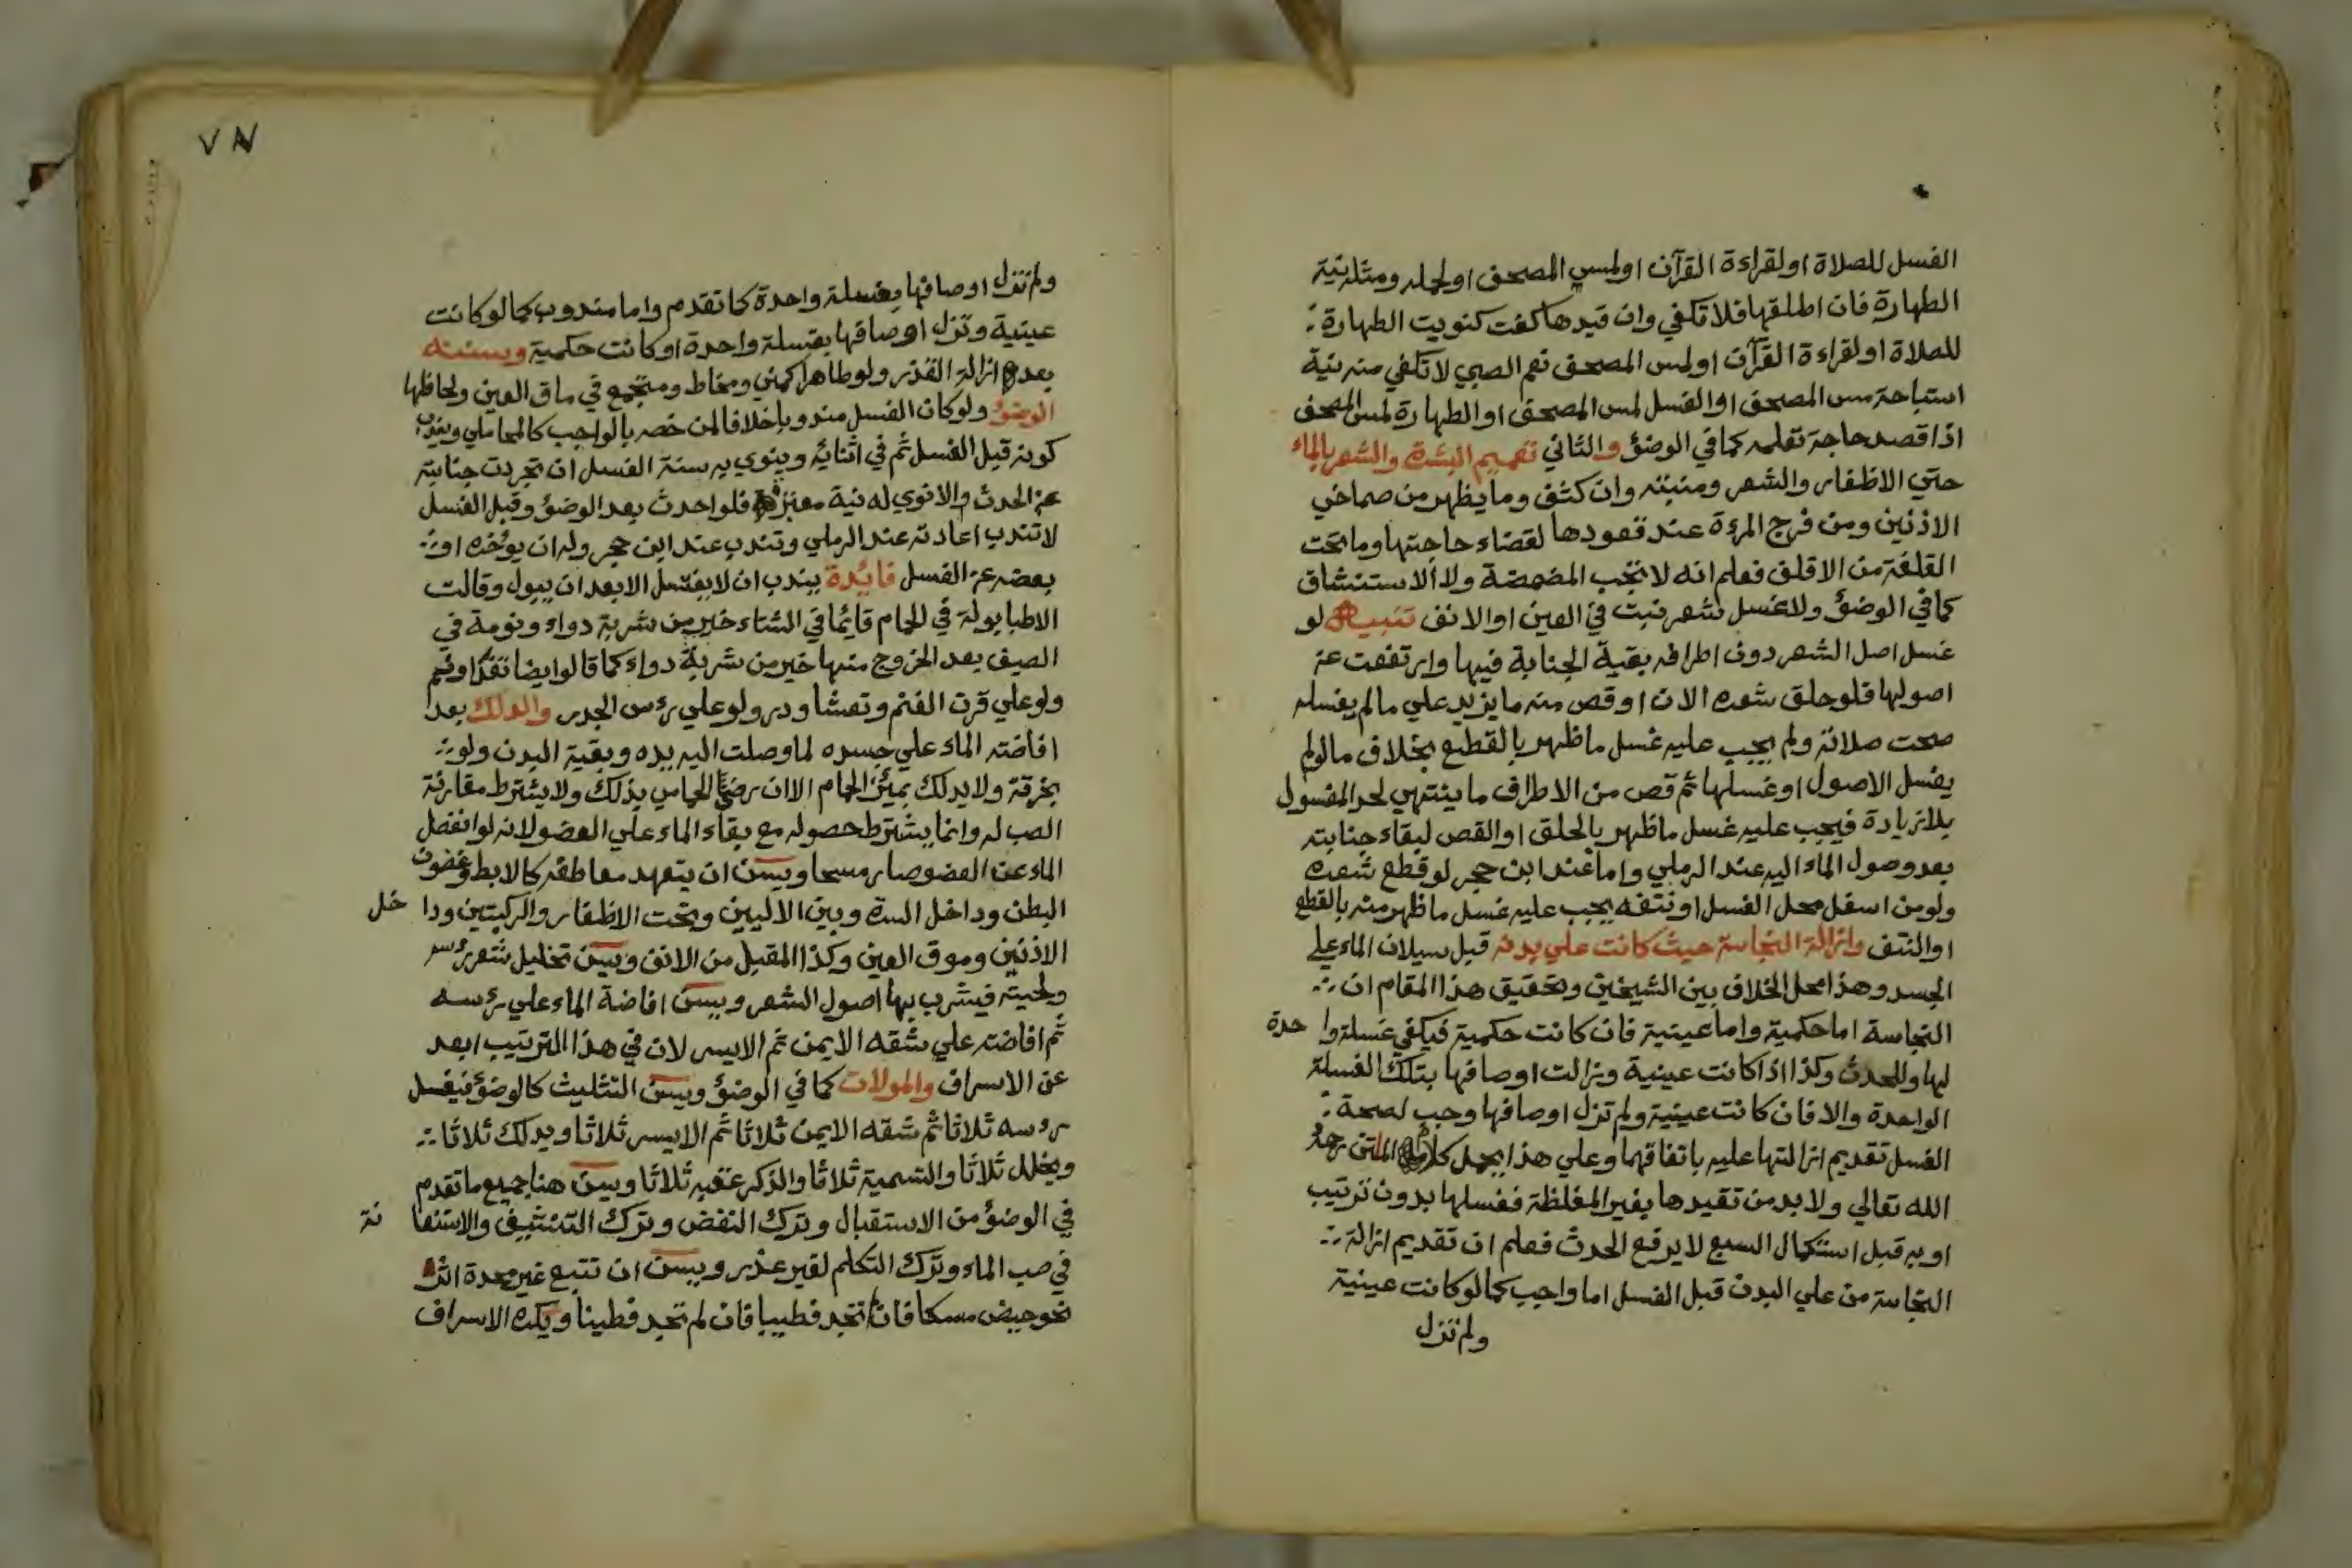 الغسل للصلاة او لقراءة القرآن او لمس المصحف او لحمله ومثله نية
الطهارة فان اطلقها فلا تكفي وان قيدها كفت كنويت الطهارة
للصلاة او لقراءة القرآن او لمس المصحف نعم الصبي لا تكفي منه نية
استباحة مس المصحف او الغسل لمس المصحف او الطهارة لمس المصحف
اذا قصد حاجة تعلمه كما في الوضؤ والثاني تعميم البشرة والشعر بالماء
حتي الاظفار والشعر ومنبته وان كثف وما يظهر من صماخي
الاذنين ومن فرج المرءة عند قعودها لقضاء حاجتها وما تحت
القلفة من الاقلف فعلم انه لا تجب المضمضة ولا الاستنشاق
كما في الوضؤ ولا غسل شعر نبت في العين او الانف تنبيه لو
غسل اصل الشعر دون اطرافه بقية الجنابة فيها وارتفعت عن
اصولها فلو حلق شعره الان او قص منه ما يزيد علي ما لم يغسله
صحت صلاته ولم يجب عليه غسل ما ظهر بالقطع بخلاف ما لو لم
يغسل الاصول او غسلها ثم قص من الاطراف ما ينتهي لحد المغسول
بلا زيادة فيجب عليه غسل ما ظهر بالحلق او القص لبقاء جنابته
بعد وصول الماء اليه عند الرملي واما عند ابن حجر لو قطع شعره
ولو من اسفل محل الغسل او نتفه يجب عليه غسل ما ظهر منه بالقطع
او النتف وازالة النجاسة حيث كانت علي بدنه قبل سيلان الماء علي
الجسد وهذا محل الخلاف بين الشيخين وتحقيق هذا المقام ان
النجاسة اما حكمية واما عينية فان كانت حكمية فيكفي غسلة وا حدة
لها وللحدث وكذا اذا كانت عينية وزالت اوصافها بتلك الغسلة
الواحدة والا فان كانت عينية ولم تزل اوصافها وجب لصحة
الغسل تقديم ازالتها عليه باتفاقهما وعلي هذا يحمل كلام الماتن رحمه
الله تعالي ولا بد من تقيدها بغير المغلظة فغسلها بدون ترتيب
او به قبل استكمال السبع لا يرفع الحدث فعلم ان تقديم ازالة
النجاسة من علي البدن قبل الغسل اما واجب كما لو كانت عينية
ولم تزل
٧٨
ولم تزل اوصافها بغسلة واحدة كما تقدم واما مندوب كما لو كانت
عينية وتزل اوصافها بغسلة واحدة او كانت حكمية وسننه
بعد ازالة القذر ولو طاهرا كمني ومخاط ومتجمع في ماق العين ولحاظها
الوضؤ ولو كان الغسل مندوبا خلافا لمن خصه بالواجب كالمحاملي
كونه قبل الغسل ثم في اثنائه وينوي به سنة الغسل ان تجردت جنابته
عن الحدث والا نوي له نية معتبرة فلو احدث بعد الوضؤ وقبل الغسل
لا تندب اعادته عند الرملي وتندب عند ابن حجر وله ان يؤخره او
بعضه عن الغسل فائدة يندب ان لا يغتسل الا بعد ان يبول وقالت
الاطبا بولة في الحمام قائما في الشتاء خير من شربة دواء ونومة في
الصيف بعد الخروج منها خير من شربة دواء كما قالوا ايضا تغدا ونم
ولو علي قرن الغنم وتعشا ودر ولو علي رؤس الجدر والدلك بعد
افاضته الماء علي جسده لما وصلت اليه يده وبقية البدن ولو
بخرقة ولا يدلك بميئزر الحمام الا ان رضي الحمامي بذلك ولا يشترط مقارنة
الصب له وانما يشترط حصوله مع بقاء الماء علي العضو لانه لو انفصل
الماء عن العضو صار مسحا ويسن ان يتعهد معاطفه كالابط وغضون
البطن وداخل السرة وبين الاليين وتحت الاظفار والركبتين ودا خل
الاذنين وموق العين وكذا المقبل من الانف ويسن تخليل شعر رؤسه
ولحيته فيشرب بها اصول الشعر ويسن افاضة الماء علي رؤسه
ثم افاضته علي شقه الايمن ثم الايسر لان في هذا الترتيب ابعد
عن الاسراف والمولات كما في الوضؤ ويسن التثليث كالوضؤ فيغسل
رؤسه ثلاثا ثم شقه الايمن ثلاثا ثم الايسر ثلاثا ويدلك ثلاثا
ويخلل ثلاثا والتسمية ثلاثا والذكر عقبه ثلاثا ويسن هنا جميع ما تقدم
في الوضؤ من الاستقبال وترك النفض وترك التنشيف والاستعا نة
في صب الماء وترك التكلم لغير عذر ويسن ان تتبع غير محدة اثر
نحو حيض مسكا فان لم تجد فطيبا فان لم تجد فطينا ويكره الاسراف